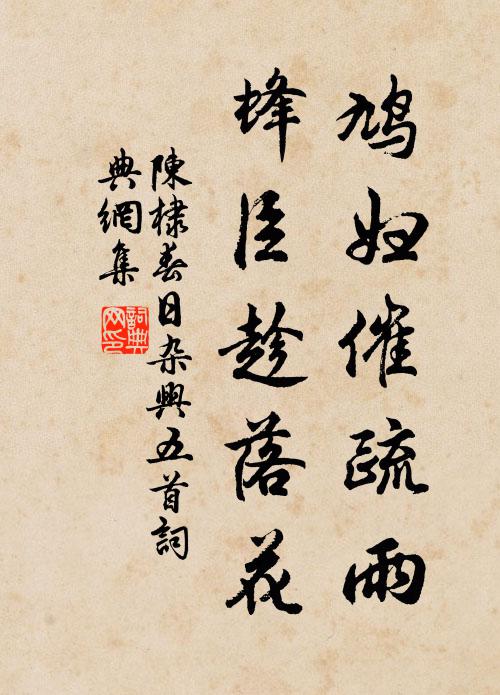 鳩婦催疏雨
蜂臣趁落花
陳棣春日杂興五首詞
典網集
詞典网印